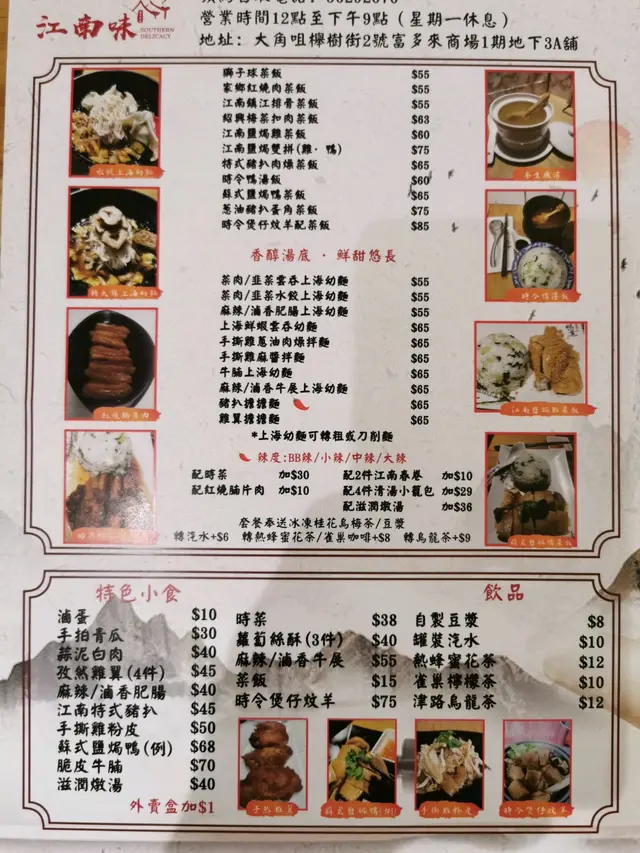 江南味
SOUTHERN DELICACY
營業時間12點至下午9點（星期一休息）
地址: 大角咀櫸樹街2號富多來商場1期地下3A舖
獅子球菜飯 $55
家鄉紅燒肉菜飯 $55
江南鎮江排骨菜飯 $55
紹興梅菜扣肉菜飯 $63
江南鹽焗雞菜飯 $60
江南鹽焗雙拼(雞·鴨) $75
特式豬扒肉燥菜飯 $65
時令鴨湯飯 $60
蘇式鹽焗鴨菜飯 $65
蔥油豬扒蛋角菜飯 $75
時令煲仔炆羊配菜飯 $85
香醇湯底 · 鮮甜悠長
菜肉/韮菜雲吞上海幼麵 $55
菜肉/韮菜水餃上海幼麵 $55
麻辣/滷香肥腸上海幼麵 $55
上海鮮蝦雲吞幼麵 $65
手撕雞蔥油肉燥拌麵 $65
手撕雞麻醬拌麵 $65
牛腩上海幼麵 $65
麻辣/滷香牛展上海幼麵 $65
豬扒擔擔麵 $65
雞翼擔擔麵 $65
*上海幼麵可轉粗或刀削麵
辣度:BB辣/小辣/中辣/大辣
配時菜 加$30 配2件江南春卷 加$10
配紅燒腩片肉 加$10 配4件清湯小籠包 加$29
配滋潤燉湯 加$36
套餐奉送冰凍桂花烏梅茶/豆漿
轉汽水+$6 轉熱蜂蜜花茶/雀巢咖啡+$8 轉烏龍茶+$9
特色小食
滷蛋 $10
手拍青瓜 $30
蒜泥白肉 $40
孜然雞翼(4件) $45
麻辣/滷香肥腸 $40
江南特式豬扒 $45
手撕雞粉皮 $50
蘇式鹽焗鴨(例) $68
脆皮牛腩 $70
滋潤燉湯 $40
外賣盒加$1
時菜 $38
蘿蔔絲酥(3件) $40
麻辣/滷香牛展 $55
菜飯 $15
時令煲仔炆羊 $75
飲品
自製豆漿 $8
罐裝汽水 $10
熱蜂蜜花茶 $12
雀巢檸檬茶 $10
津路烏龍茶 $12
手撕雞粉皮
時令煲仔炆羊